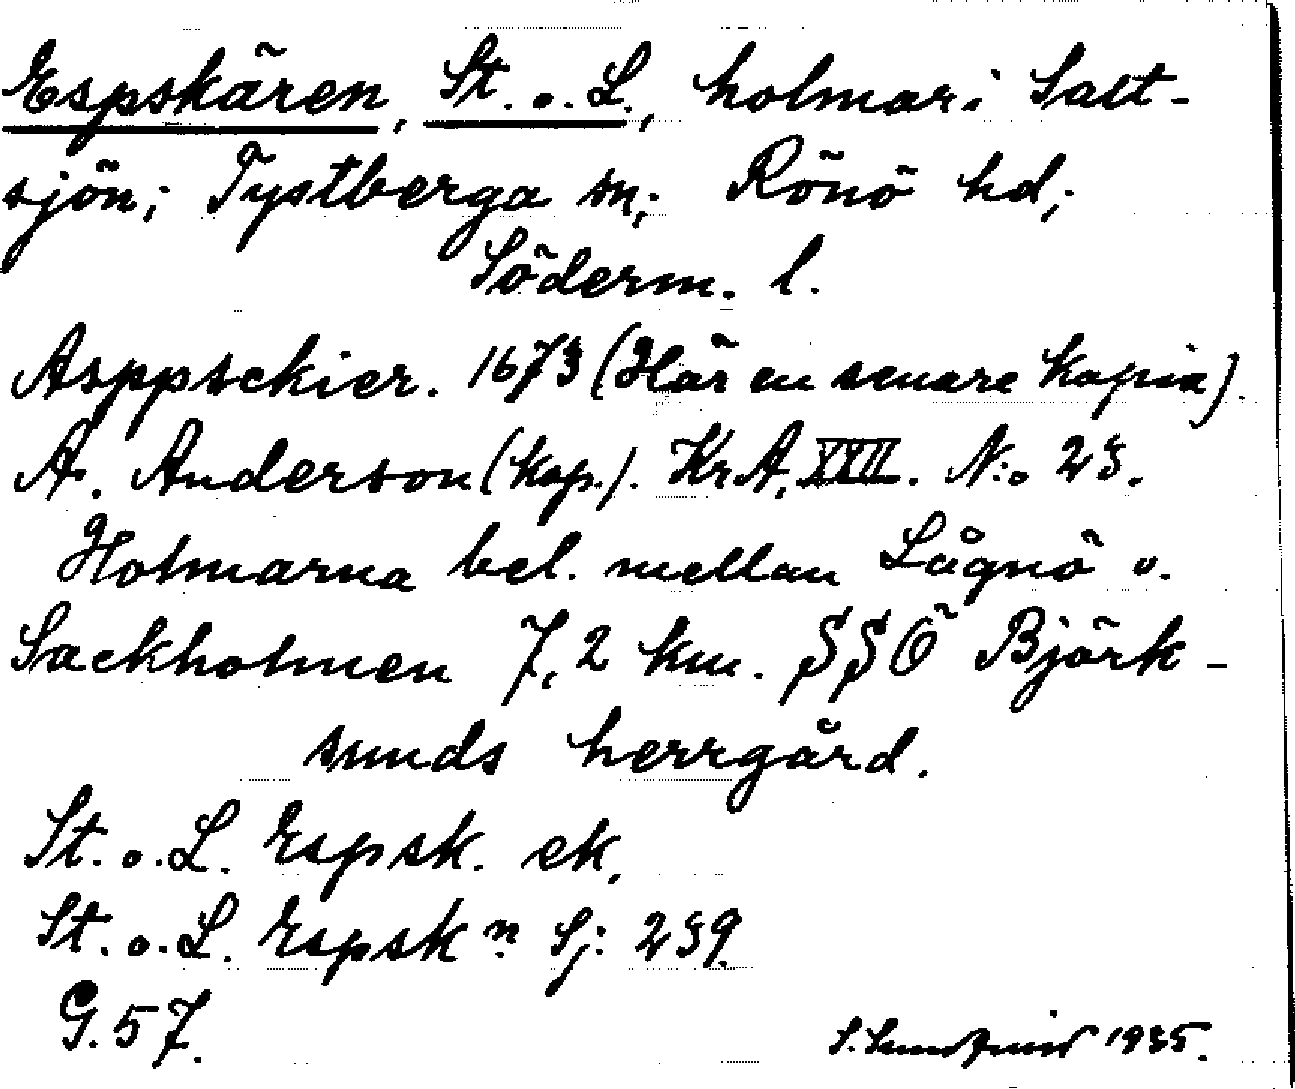 Espskären, St. o. L., holmar i Salt-
sjön; Tystberga sn; Rönö hd;
Söderm. l.
Asppsckier. 1673 (Här en senare kopia).
A. Anderson (kop.). Kr.A. XXII. N:o 23.
Holmarna bel. mellan Långö o.
Sackholmen 7,2 km. SSÖ Björk-
sunds herrgård.
St. o. L. Espsk. ek.
St. o. L. Espsk n. Sj: 239.
G. 57.
1935.